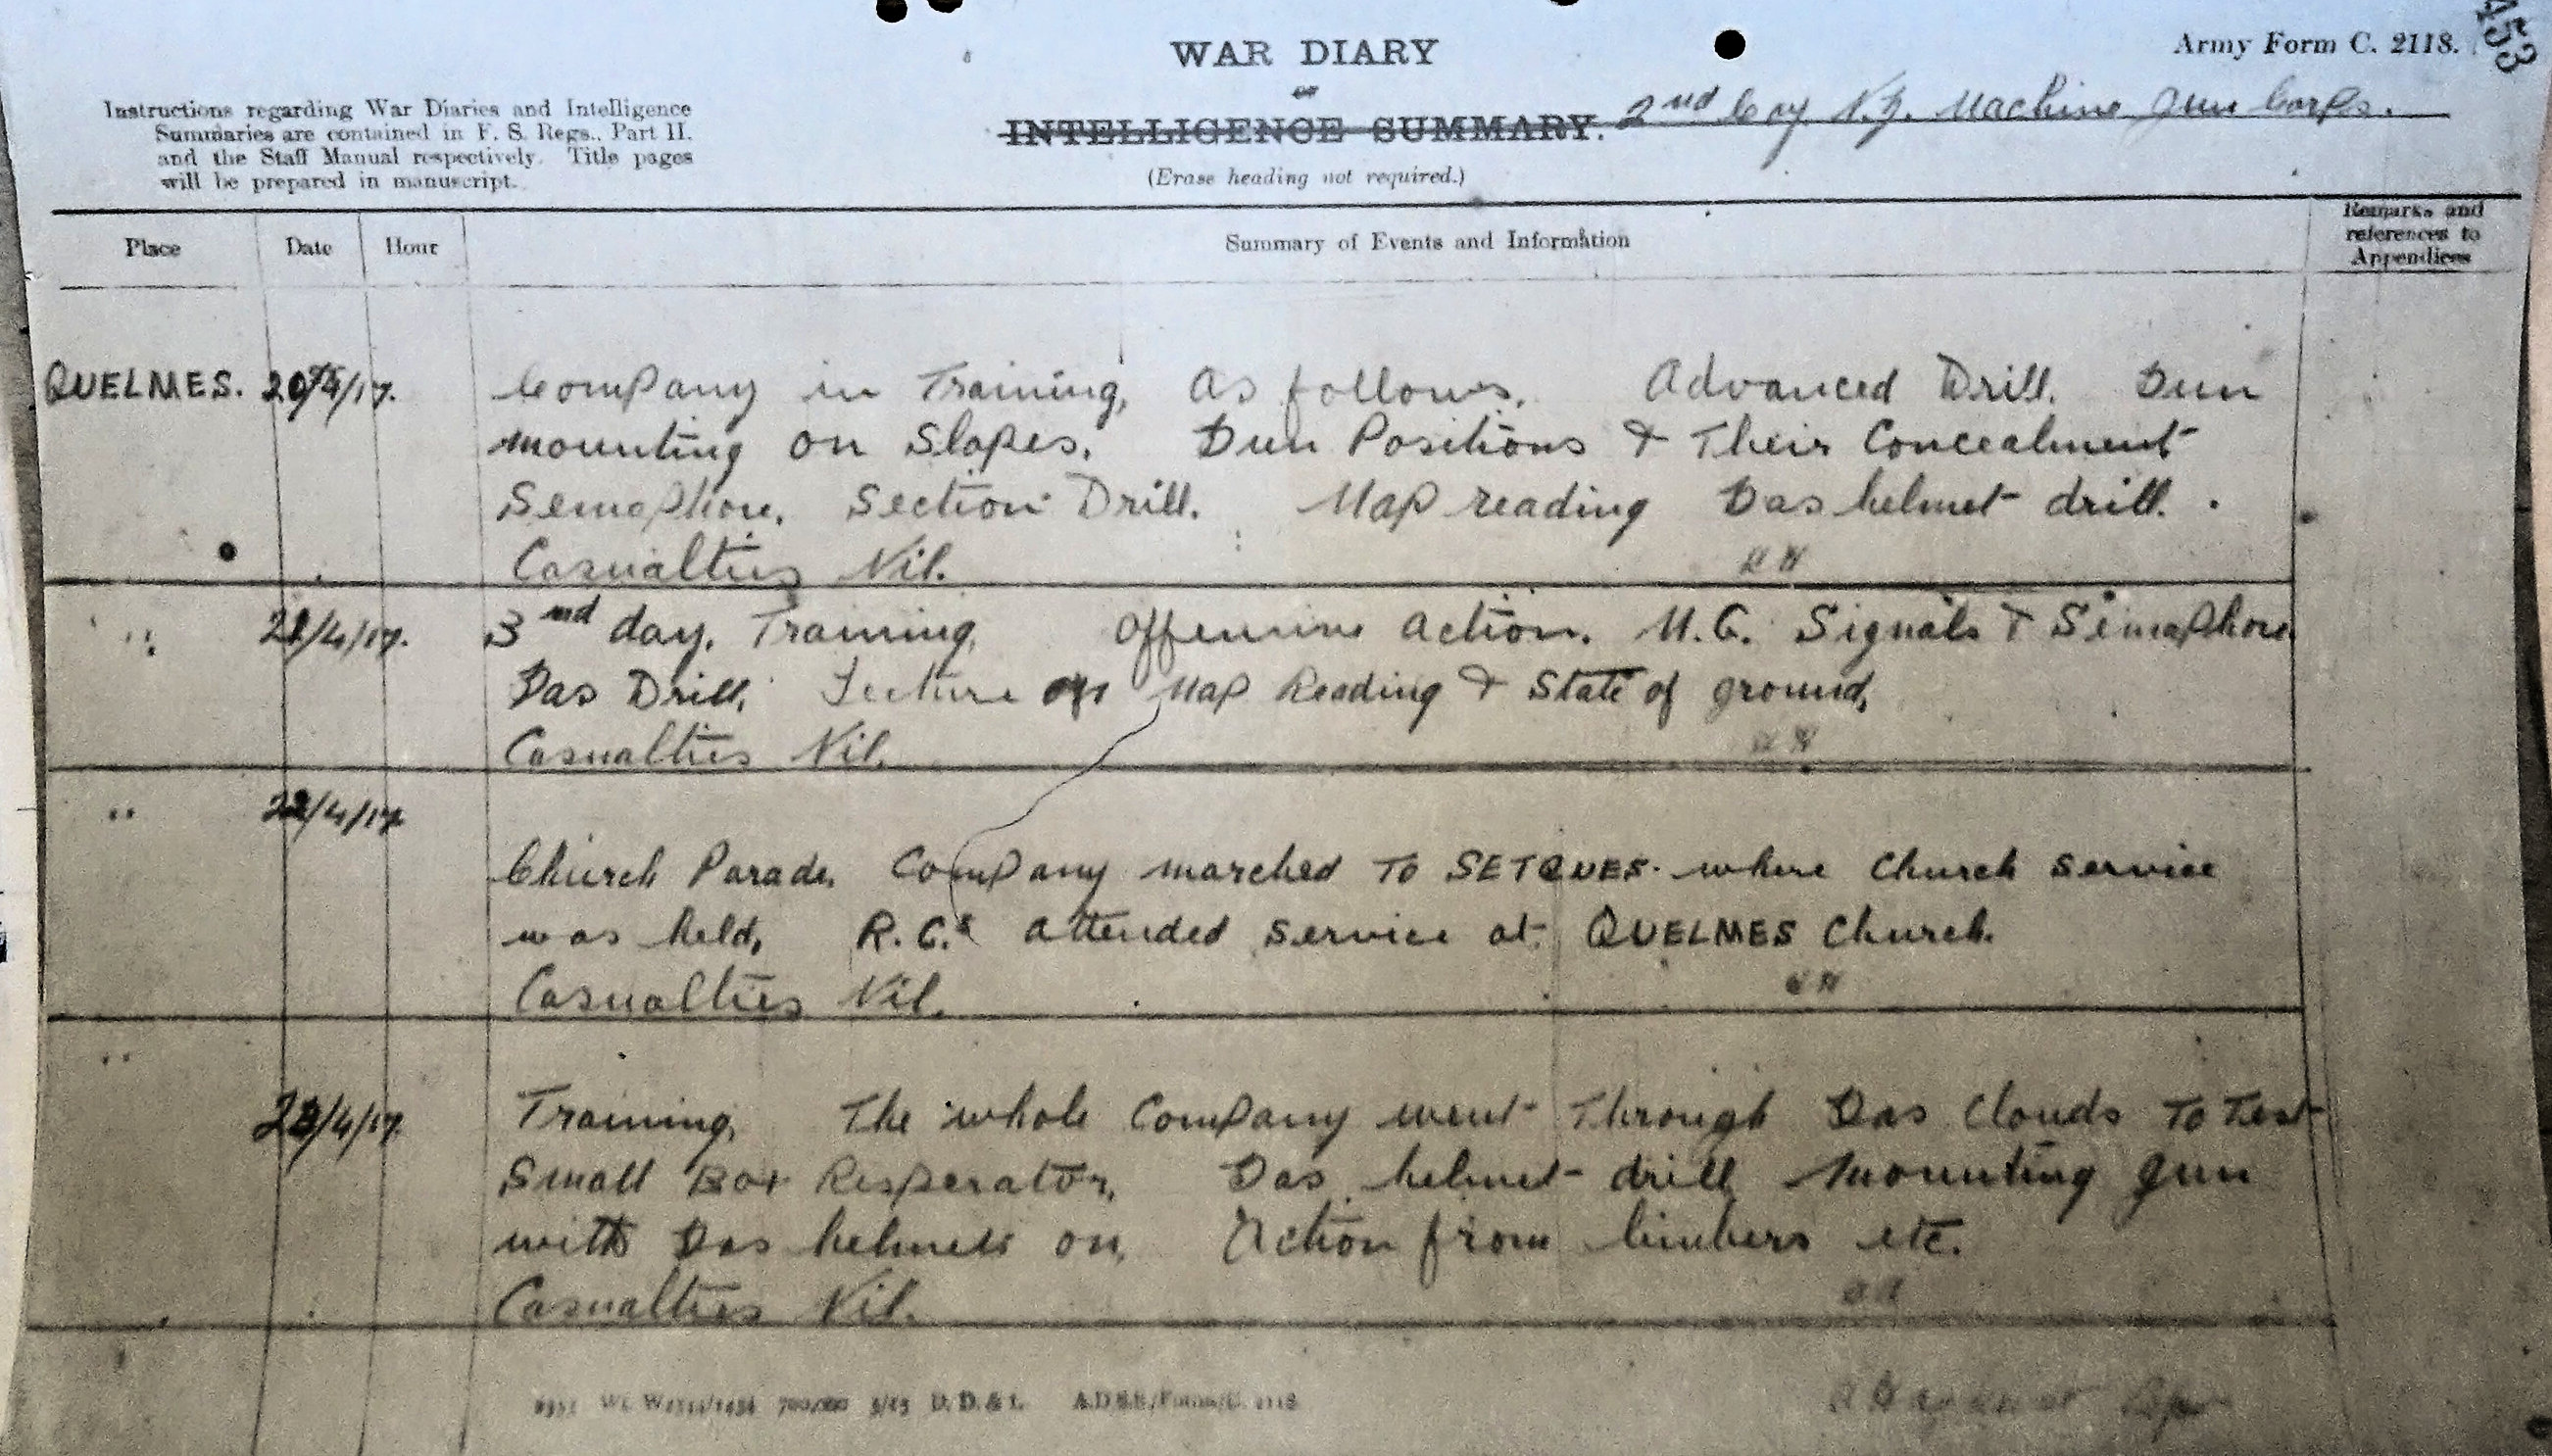 453
WAR DIARY
Army Form C. 2118.
or
Instructions regarding War Diaries and Intelligence
Summaries are contained in F. S. Regs., Part II.
and the Staff Manual respectively. Title pages
will be prepared in manuscript.
INTELLIGENCE SUMMARY. 2nd Coy N.Z. Machine Gun Corps.
(Erase heading not required.)
Place Date Hour Summary of Events and Information Remarks and references to Appendices
QUELMES. 20/4/17. Company in Training, as follows. Advanced Drill. Gun
mounting on Slopes. Gun Positions & Their Concealment
Semaphore. Section Drill. Map reading Gas helmet drill.
Casualties Nil.
" 21/4/17. 3nd day. Training, Offensive action. M.G. Signals & Semaphore
Gas Drill, Lecture on Map Reading & State of ground,
Casualties Nil.
" 22/4/17
Church Parade, Company marched To SETQUES. where Church Service
was held, R.C.s attended Service at QUELMES Church.
Casualties Nil.
"
23/4/17. Training, The whole Company went Through Gas Clouds To Test
Small Box Resperator, Gas helmet drill Mounting gun
with Gas helmets on, Action from limbers etc.
Casualties Nil.